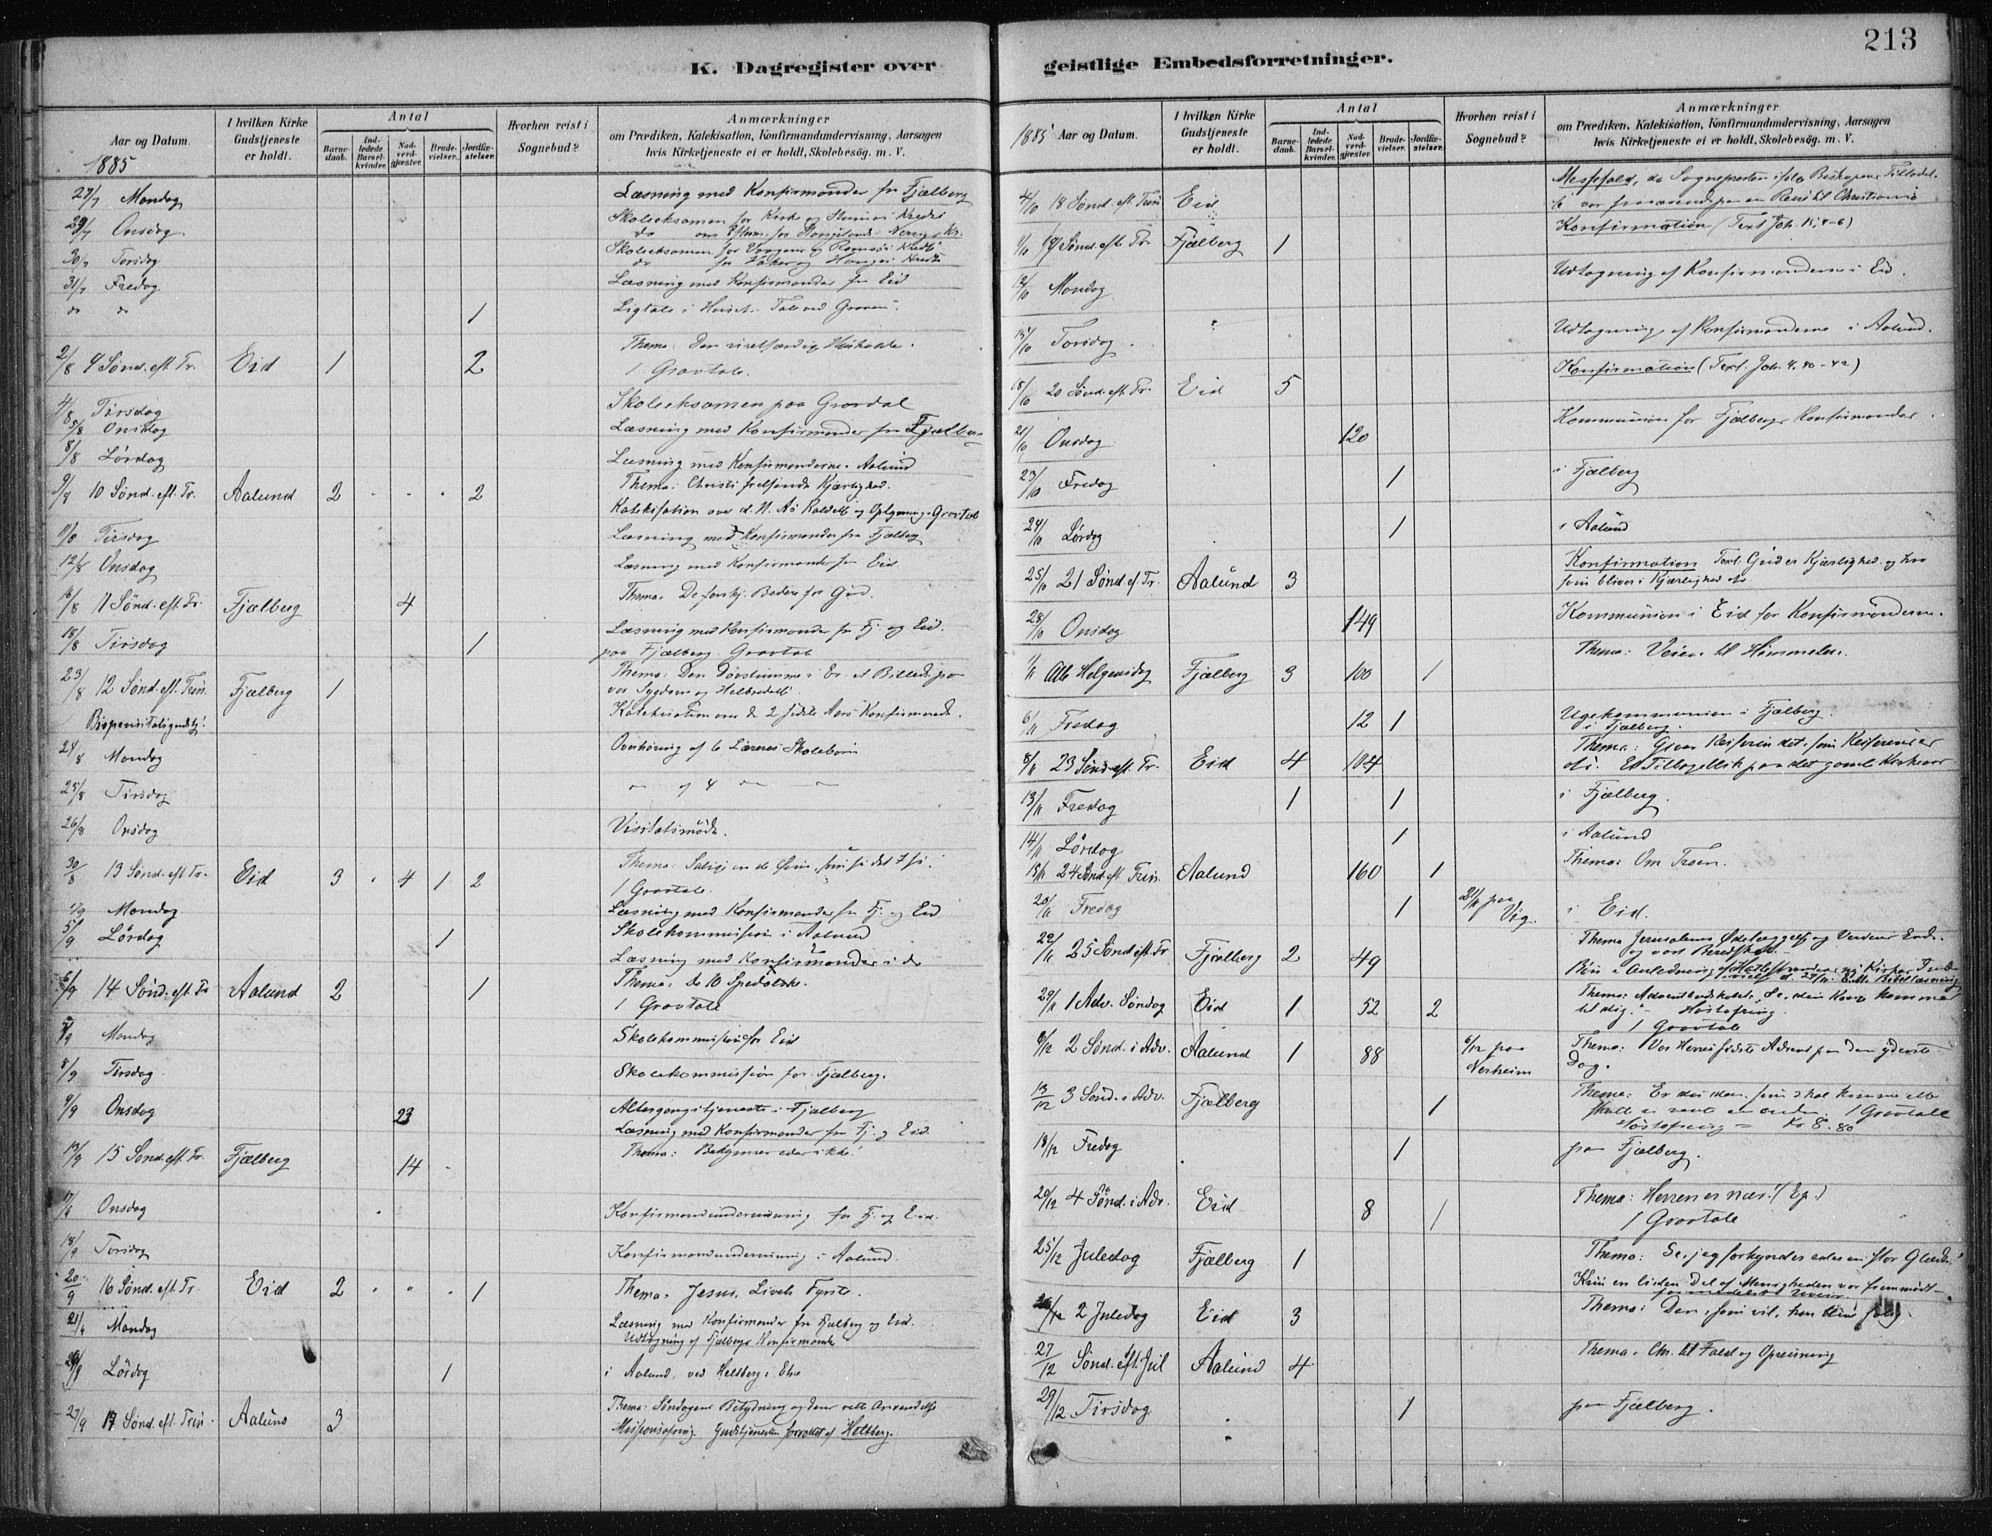 213
K. Dagregister over
Aar og Datum.
1885
I hvilken Kirke Gudstjeneste er holdt.
Antal
Barnedaab.
Indledede Barselkvinder.
Nadverdgjæster.
Brudevielser.
Jordfæstelser.
Hvorhen reist i Sognebud?
Anmærkninger
om Prædiken, Katekisation, Konfirmandundervisning, Aarsagen
hvis Kirketjeneste ei er holdt, Skolebesøg. m. V.
27/7 Mandag Læsning med Konfirmander fra Fjælberg
29/7 Onsdag Skoleeksamen for Kirke og
30/7 Torsdag Skoleeksamen for
31/7 Fredag Læsning med Konfirmander fra Eid
do do 1 Ligtale i Huset. Tale ved Graven.
2/8 9 Sønd. eft. Tr. Eid 1 2 Thema: Den uretfærdige Husholder.
1 Gravtale.
4/8 Tirsdag Skoleeksamen paa
5/8 Onsdag Læsning med Konfirmander fra Fjælberg
8/8 Lørdag Læsning med Konfirmanderne i Aalund
9/8 10 Sønd. eft. Tr. Aalund 2 2 Thema: Christi frelsende Kjærlighed.
Katekisation over
11/8 Tirsdag Læsning med Konfirmander fra Fjælberg
12/8 Onsdag Læsning med Konfirmander fra Eid
16/8 11 Sønd. eft. Tr. Fjælberg 4 Thema: De forskj. Bedere for Gud.
18/8 Tirsdag 1 Læsning med Konfirmander fra Fj. og Eid.
paa Fjælberg. Gravtale
23/8 12 Sønd. eft. Trin. Fjælberg 1 Thema: Den Døvstumme i Ev. et Billede paa
vor Sygdom og Helbredelse.
Bispevisitatsgudstj. Katekisation over de 2 sidste Aars Konfirmerede.
24/8 Mandag Overhøring af 6 Læreres Skolebørn
25/8 Tirsdag
26/8 Onsdag Visitatsmøde.
30/8 13 Sønd. eft. Tr. Eid 3 4 1 2 Thema: Salige ere de Øine, som se det I se.
1 Gravtale.
Mandag Læsning med Konfirmander fra Fj. og Eid
5/9 Lørdag 1 Skolekommission i Aalund
Læsning med Konfirmander i do
6/9 14 Sønd. eft. Tr. Aalund 2 1 Thema: De 10 Spedalske.
1 Gravtale
Mandag Skolekommission for Eid
8/9 Tirsdag Skolekommission for Fjælberg.
9/9 Onsdag 23 Altergangstjeneste i Fjælberg
Læsning med Konfirmander fra Fj. og Eid.
13/9 15 Sønd. eft. Tr. Fjælberg 14 Thema: Bekymrer eder ikke!
Onsdag Konfirmandundervisning for Fj. og Eid.
18/9 Torsdag Konfirmandundervisning i Aalund
20/9 16 Sønd. eft. Tr. Eid 2 1 Thema: Jesus, Livets Fyrste.
21/9 Mandag Læsning med Konfirmander fra Fjælberg og Eid.
Udtagning af Fjælbergs Konfirmander
26/9 Lørdag 1 i Aalund, ved Heltberg i Etne
27/9 17 Sønd. eft. Trin. Aalund 3 Thema: Søndagens Betydning og dens rette Anvendelse
Missionsofring. Gudstjenesten forrettet af Heltberg.
geistlige Embedsforretninger.
1885 Aar og Datum.
I hvilken Kirke Gudstjeneste er holdt.
Antal
Barnedaab.
Indledede Barselkvinder.
Nadverdgjæster.
Brudevielser.
Jordfæstelser.
Hvorhen reist i Sognebud?
Anmærkninger
om Prædiken, Katekisation, Konfirmandundervisning, Aarsagen
hvis Kirketjeneste ei er holdt, Skolebesøg. m. V.
4/10 18 Sønd. eft. Trin Eid Messefald, da Sognepresten ifølge Biskopens Tilladelse
var fraværende paa en Reise til Christiania
19 Sønd. eft. Tr. Fjælberg 1 Konfirmation (Text Joh. 15, 4-6)
12/10 Mandag Udtagning af Konfirmanderne i Eid.
15/10 Torsdag Udtagning af Konfirmanderne i Aalund.
18/10 20 Sønd. eft. Tr. Eid 5 Konfirmation (Text Joh. 4, 40-42)
21/10 Onsdag 120 Kommunion for Fjælbergs Konfirmander.
23/10 Fredag 1 i Fjælberg
24/10 Lørdag 1 i Aalund
25/10 21 Sønd. ef. Tr. Aalund 3 Konfirmation Text: Gud er Kjærlighed, og hvo
som bliver i Kjærlighed etc.
28/10 Onsdag 149 Kommunion i Eid for Konfirmanderne.
1/11 Alle Helgensdag Fjælberg 3 100 1 Thema: Veien til Himmelen.
6/11 Fredag 12 1 Ugekommunion i Fjælberg.
i Fjælberg.
8/11 23 Sønd. eft. Tr. Eid 4 104 Thema: Giver Keiseren det, som Keiserens er
etc. Et Tilbageblik paa det gamle Kirkeaar
13/11 Fredag 1 1 i Fjælberg.
14/11 Lørdag 1 i Aalund
15/11 24 Sønd. eft. Trin. Aalund 160 1 Thema: Om Troen.
20/11 Fredag 1 21/11 paa Vig. i Eid.
22/11 25 Sønd. eft. Tr Fjælberg 2 49 Thema Jerusalems Ødelæggelse og Verdens Ende
og vort Beredskab.
Bøn i Anledning af
29/11 1 Adv. Søndag Eid 1 52 2 Thema: Adventsbudskabet: "Se, din Konge kommer
til dig." Høstofring.
1 Gravtale
6/12 2 Sønd. i Adv. Aalund 1 88 6/12 paa Nerheim Thema: Vor Herres sidste Advent paa den yderste
Dag.
13/12 3 Sønd. i Adv. Fjælberg 1 Thema: Er du den, som skal komme eller
skulle vi vente en anden. 1 Gravtale
Høstofring
18/12 Fredag 1 paa Fjælberg.
20/12 4 Sønd. i Adv. Eid 8 1 Thema: Herren er nær! (Ep.)
1 Gravtale
25/12 Juledag Fjælberg 1 Thema: Se, jeg forkynder eder en stor Glæde.
Kun en liden Del af Menigheden var fremmødt
2 Juledag Eid 3 Thema: Den, som vil, han
27/12 Sønd. eft. Jul Aalund 4 Thema: Chr. til Fald og Opreisning
29/12 Tirsdag 1 paa Fjælberg.